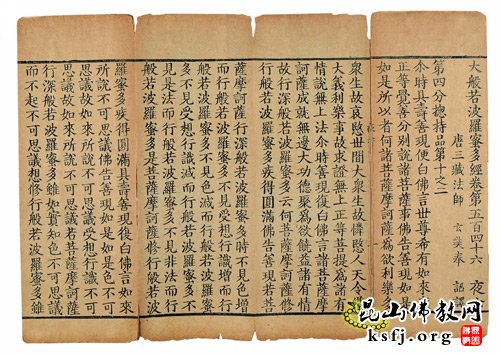 大般若波羅蜜多經卷第五百四十六 夜
唐三藏法師 玄奘奉 詔譯
第四分總持品第十之二
尒時具壽善現便白佛言世尊希有如來應
正等覺善分別說諸菩薩事佛告善現如是
如是所以者何諸菩薩摩訶薩為欲利樂多
衆生故哀愍世間大衆生故憐愍人天令獲
大義利樂事故求證無上正等菩提爲諸有
情說無上法尒時善現復白佛言諸菩薩摩
訶薩成就無邊大功德聚爲欲饒益諸有情
故行深般若波羅蜜多云何菩薩摩訶薩修
行般若波羅蜜多疾得圓滿佛告善現若菩
薩摩訶薩行深般若波羅蜜多時不見色增
而行般若波羅蜜多不見受想行識增而行
般若波羅蜜多不見色減而行般若波羅蜜
多不見受想行識減而行般若波羅蜜多不
見是法而行般若波羅蜜多不見非法而行
般若波羅蜜多是菩薩摩訶薩修行般若波
羅蜜多疾得圓滿具壽善現復白佛言如來
所說不可思議佛告善現如是如是色不可
思議故如來所說不可思議受想行識不可
思議故如來所說不可思議若菩薩摩訶薩
行深般若波羅蜜多雖如實知色不可思議
而不起不可思議想修行般若波羅蜜多雖
昆山佛教网
ksfj.org